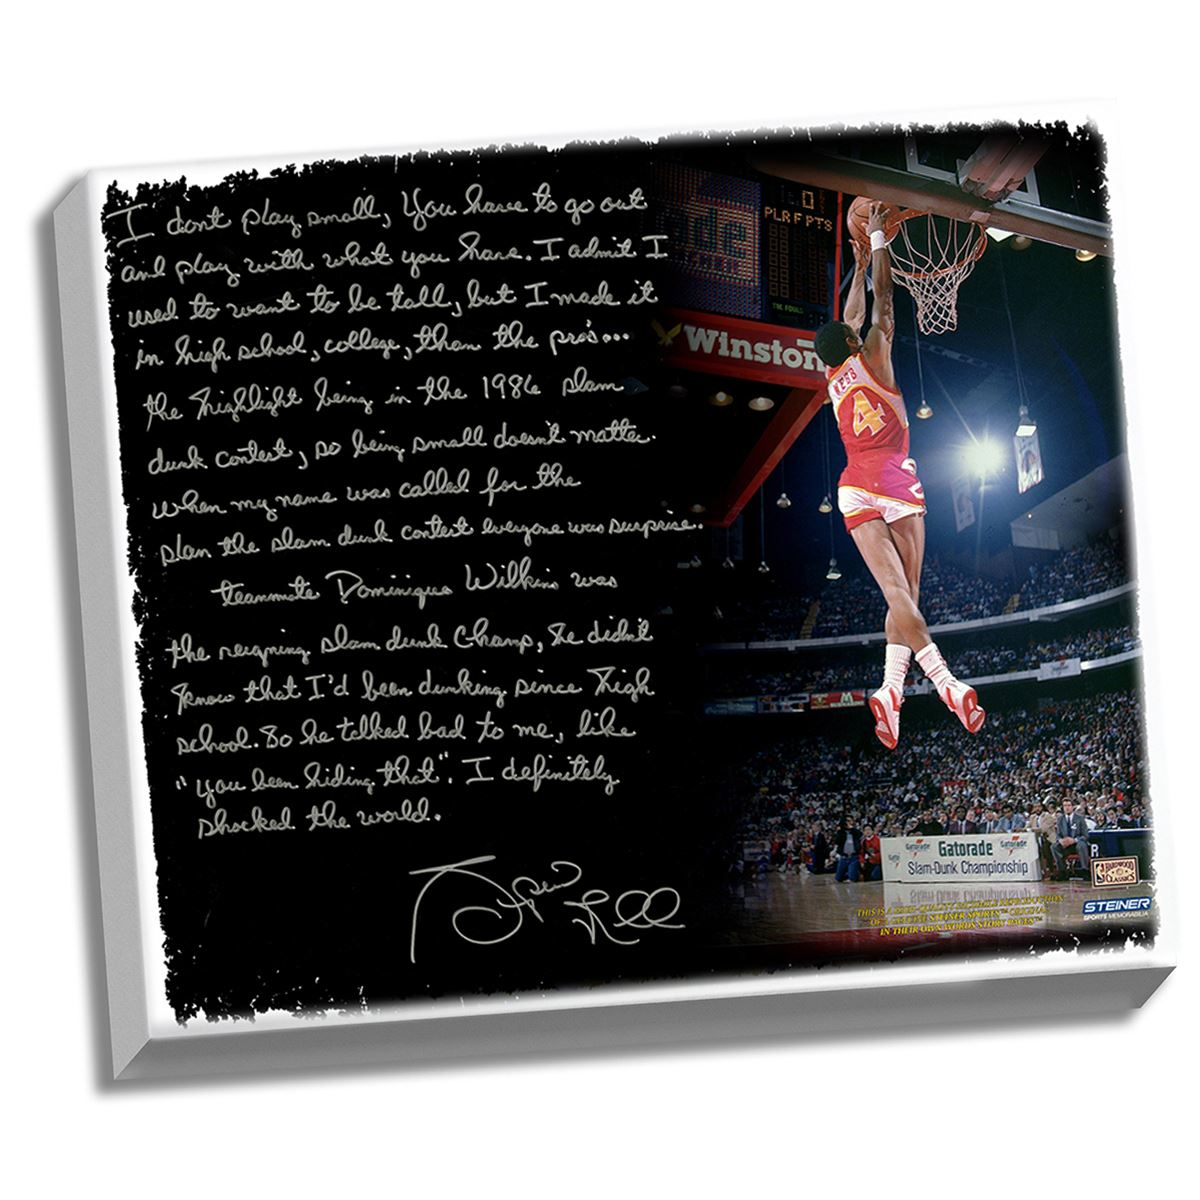 I dont play small, You have to go out
and play with what you have. I admit I
used to want to be tall, but I made it
in high school, college, than the pros...
the highlight being in the 1986 slam
dunk contest, so being small doesnt matter.
when my name was called for the
slam the slam dunk contest everyone was surprise..
teammate Dominique Wilkins was
the reigning slam dunk Champ, he didn't
know that I'd been dunking since high
school. So he talked bad to me, like
"you been hiding that". I definitely
shocked the world.
Spud Webb
PLR F PTS
TM. FOULS
Winston
WEBB
4
Gatorade
Gatorade
Gatorade
Slam-Dunk Championship
R
HARDWOOD
CLASSICS
STEINER
SPORTS MEMORABILIA
THIS IS A
OF A STEINER SPORTS™
IN THEIR OWN WORDS STORY PAGES™